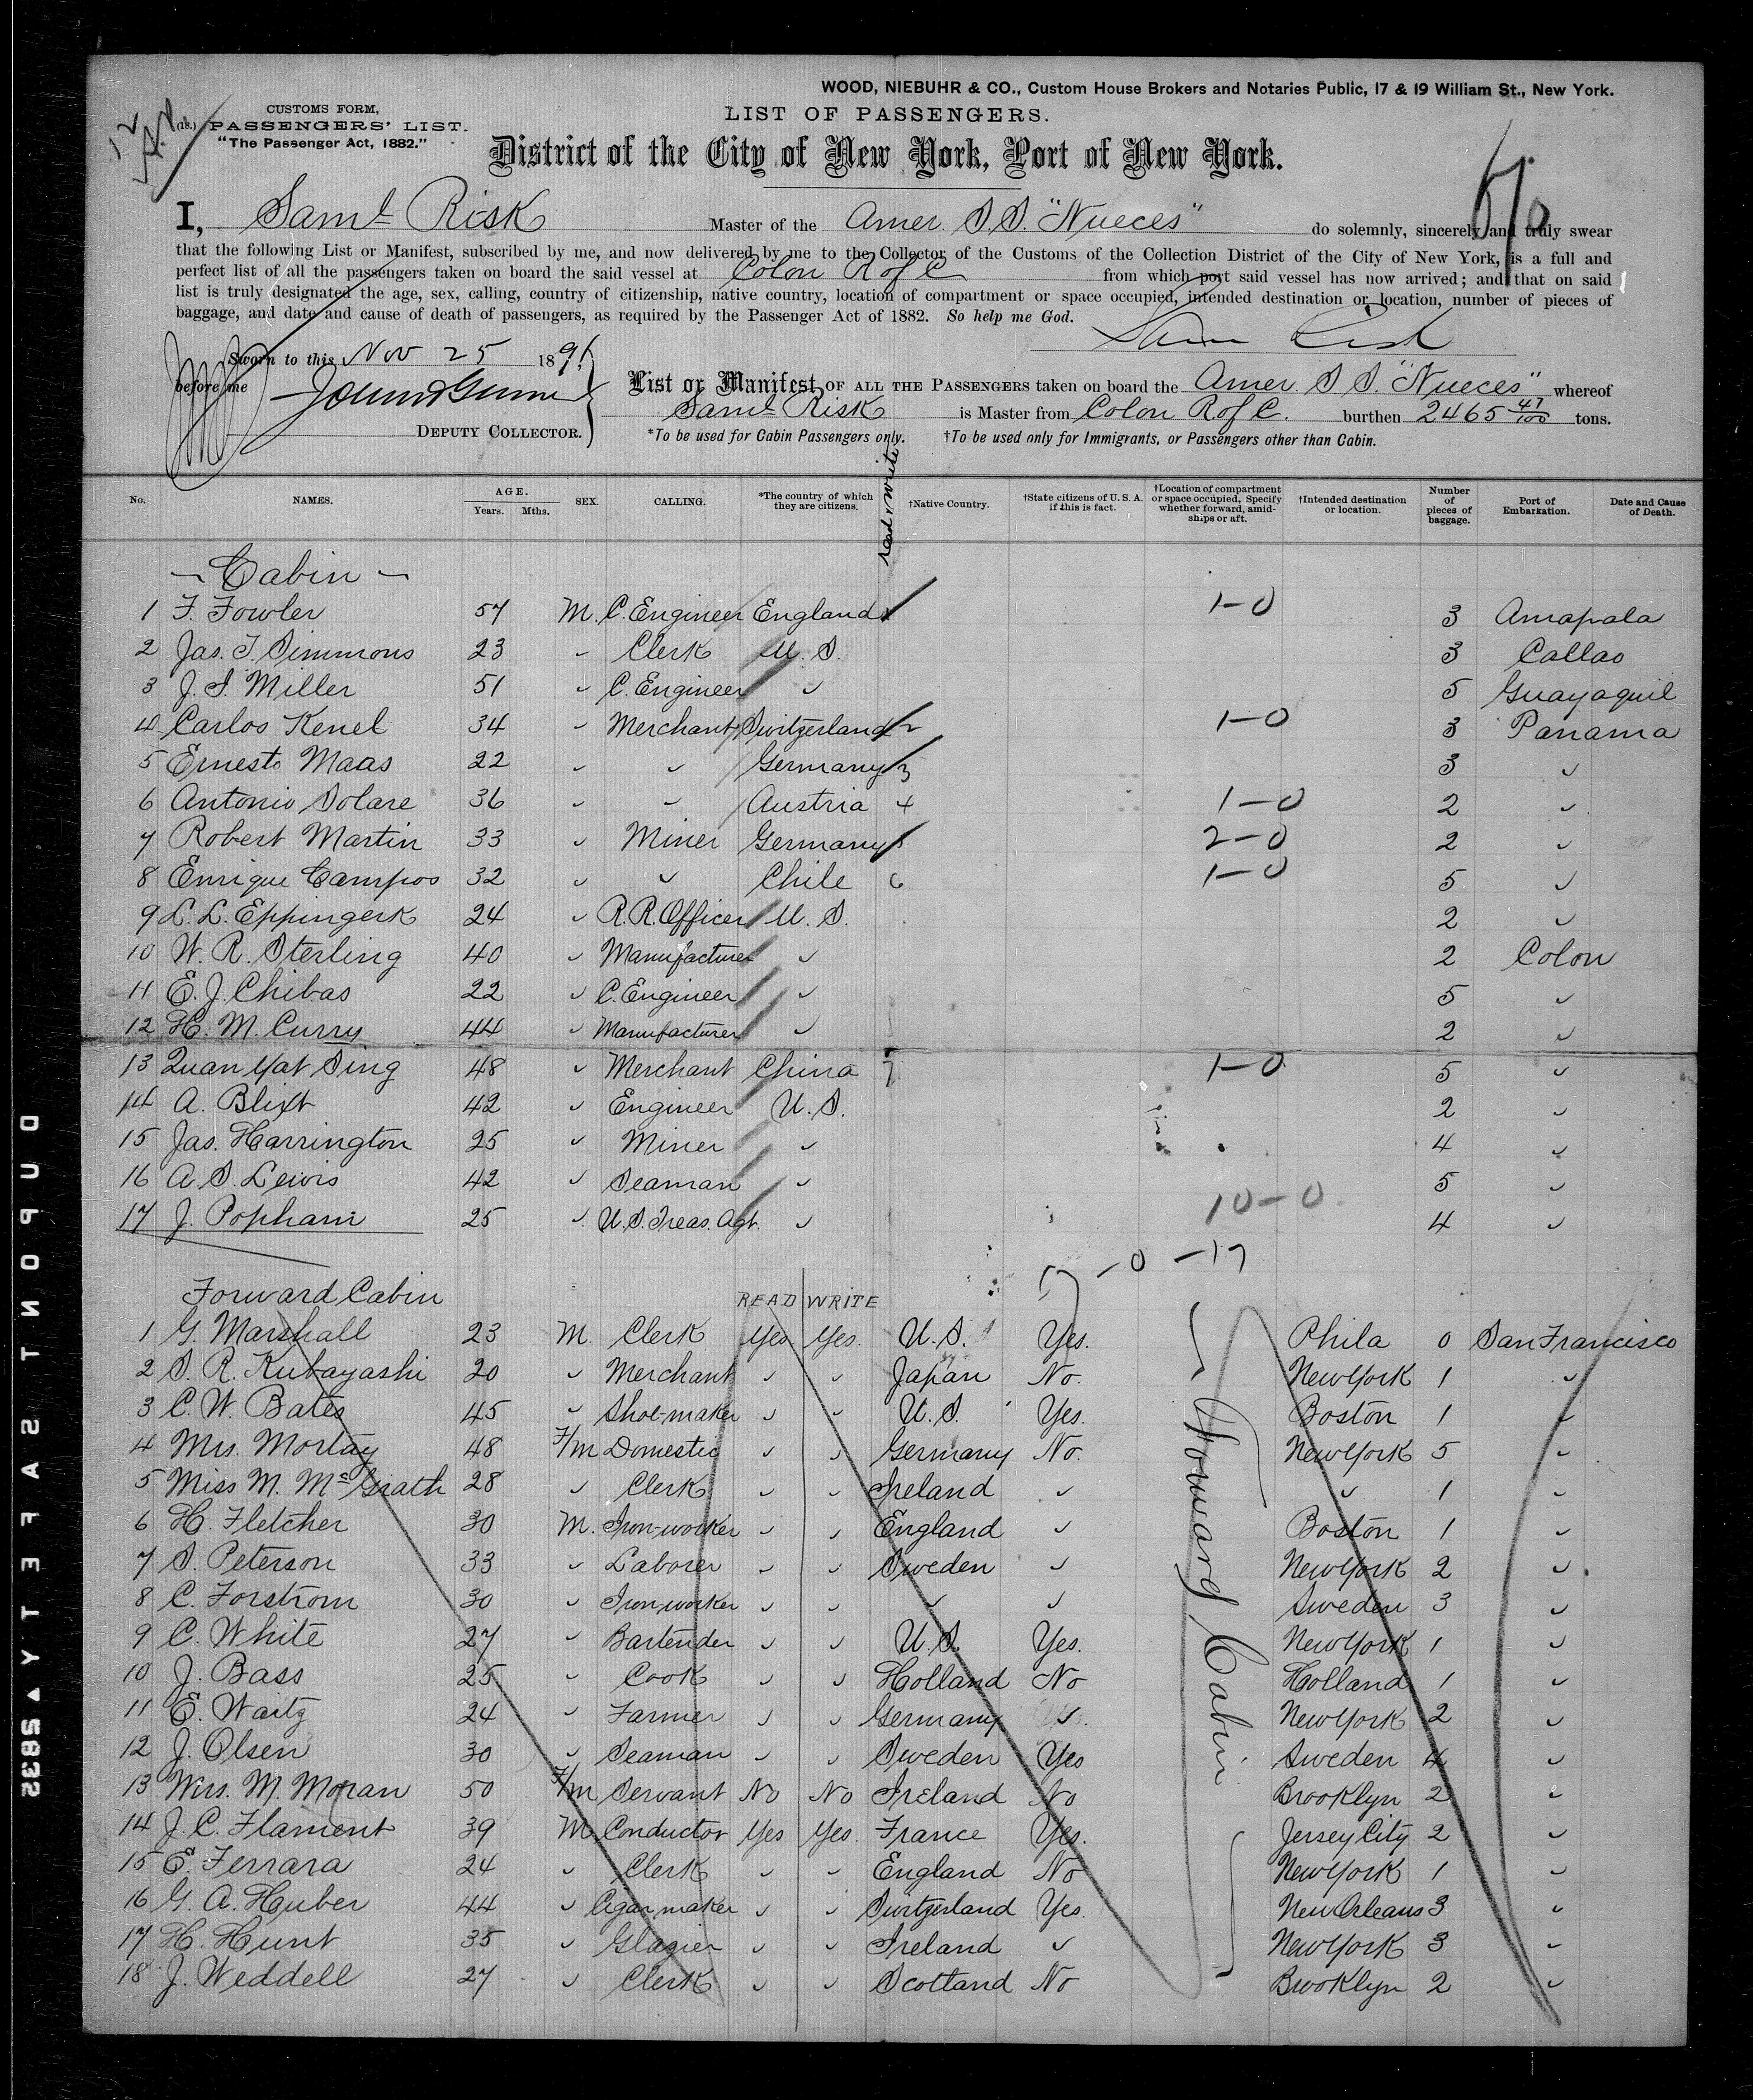 WOOD, NIEBUHR & CO., Custom House Brokers and Notaries Public, 17 & 19 William St., New York.
CUSTOMS FORM,
PASSENGERS' LIST.
"The Passenger Act, 1882."
LIST OF PASSENGERS.
District of the City of New York, Port of New York.
I, Saml Risk Master of the Amer. S.S. "Nueces" do solemnly, sincerely and truly swear
that the following List or Manifest, subscribed by me, and now delivered by me to the Collector of the Customs of the Collection District of the City of New York, is a full and
perfect list of all the passengers taken on board the said vessel at Colon R of C from which port said vessel has now arrived; and that on said
list is truly designated the age, sex, calling, country of citizenship, native country, location of compartment or space occupied, intended destination or location, number of pieces of
baggage, and date and cause of death of passengers, as required by the Passenger Act of 1882. So help me God.
Sam Risk
Sworn to this Nov 25 1891,
before me
DEPUTY COLLECTOR.
List or Manifest OF ALL THE PASSENGERS taken on board the Amer. S S. "Nueces" whereof
Saml Risk is Master from Colon R of C. burthen 2465 47/100 tons.
*To be used for Cabin Passengers only. †To be used only for Immigrants, or Passengers other than Cabin.
No. NAMES. AGE. Years. Mths. SEX. CALLING. *The country of which they are citizens. read & write †Native Country. †State citizens of U. S. A. if this is fact. †Location of compartment or space occupied, Specify whether forward, amidships or aft. †Intended destination or location. Number of pieces of baggage. Port of Embarkation. Date and Cause of Death.
- Cabin -
1 F. Fowler 57 M. C. Engineer England 1 1-0 3 Amapala
2 Jas. T. Simmons 23 " Clerk U. S. 3 Callao
3 J. S. Miller 51 " C. Engineer " 5 Guayaquil
4 Carlos Kenel 34 " Merchant Switzerland 2 1-0 3 Panama
5 Ernesto Maas 22 " " Germany 3 3 "
6 Antonio Solare 36 " " Austria 4 1-0 2 "
7 Robert Martin 33 " Miner Germany 5 2-0 2 "
8 Enrique Campos 32 " " Chile 6 1-0 5 "
9 L. L. Eppingerk 24 " R.R. Officer U. S. 2 "
10 W. R. Sterling 40 " Manufacturer " 2 Colon
11 E. J. Chibas 22 " C. Engineer " 5 "
12 H. M. Curry 44 " Manufacturer " 2 "
13 Quan Yat Sing 48 " Merchant China 7 1-0 5 "
14 A. Blixt 42 " Engineer U. S. 2 "
15 Jas. Harrington 25 " Miner " 4 "
16 A. S. Lewis 42 " Seaman " 5 "
17 J. Popham 25 " U. S. Treas. Agt. " 10-0 4 "
17 -0 -17
Forward Cabin READ WRITE
1 G. Marshall 23 M. Clerk Yes Yes. U. S. Yes. Phila 0 San Francisco
2 S. R. Kubayashi 20 " Merchant " " Japan No. New York 1 "
3 C. W. Bates 45 " Shoe-maker " " U. S. Yes. Boston 1 "
4 Mrs. Mortay 48 F/m Domestic " " Germany No. New York 5 "
5 Miss M. McGrath 28 " Clerk " " Ireland " " 1 "
6 H. Fletcher 30 M. Iron-worker " " England " Boston 1 "
7 S. Peterson 33 " Laborer " " Sweden " New York 2 "
8 C. Forstrom 30 " Iron-worker " " " " Sweden 3 "
9 C. White 27 " Bartender " " U. S. Yes. New York 1 "
10 J. Bass 25 " Cook " " Holland No Holland 1 "
11 E. Waitz 24 " Farmer " " Germany " New York 2 "
12 J. Olsen 30 " Seaman " " Sweden Yes Sweden 4 "
13 Mrs. M. Moran 50 F/m Servant No No Ireland No Brooklyn 2 "
14 J. C. Flament 39 M. Conductor Yes Yes. France Yes. Jersey City 2 "
15 E. Ferrara 24 " Clerk " " England No New York 1 "
16 G. A. Huber 44 " Cigar maker " " Switzerland Yes. New Orleans 3 "
17 H. Hunt 35 " Glazier " " Ireland " New York 3 "
18 J. Weddell 27 " Clerk " " Scotland No Brooklyn 2 "
Forward Cabin
DUPONT SAFETY ▲ S832